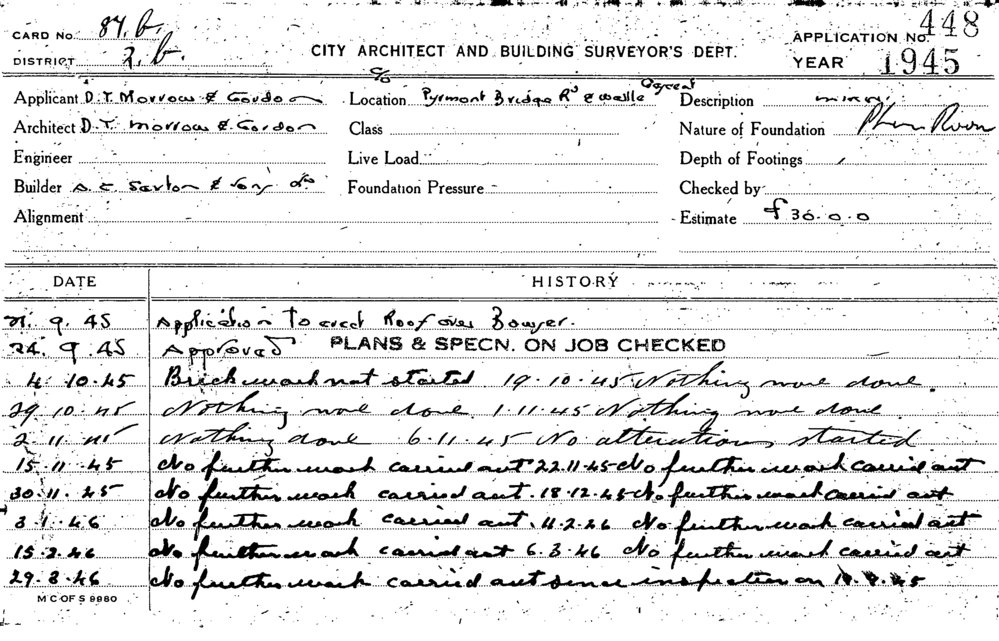 CARD No. 87.b.
DISTRICT 2.b.
CITY ARCHITECT AND BUILDING SURVEYOR'S DEPT.
APPLICATION No. 448
YEAR 1945
Applicant D.T. Morrow & Gordon
Location c/o Pyrmont Bridge Rd & Wattle Crescent
Description minor
Architect D.T. Morrow & Gordon
Class
Nature of Foundation
Engineer
Live Load
Depth of Footings
Builder & Sons
Foundation Pressure
Checked by
Alignment
Estimate £30.0.0
DATE HISTORY
21. 9. 45 Application to erect Roof over Bowser.
24. 9. 45 Approved PLANS & SPECN. ON JOB CHECKED
4. 10. 45 Brickwork not started 19.10.45 Nothing more done.
29. 10. 45 Nothing more done 1.11.45 Nothing more done
2. 11. 45 Nothing done 6.11.45 No alterations started
15. 11. 45 No further work carried out 22.11.45 No further work carried out
30. 11. 45 No further work carried out. 18.12.45 No further work carried out
3. 1. 46 No further work carried out. 4.2.46 No further work carried out
15. 2. 46 No further work carried out 6.3.46 No further work carried out
29. 3. 46 No further work carried out since inspection on
M C OF S 9980